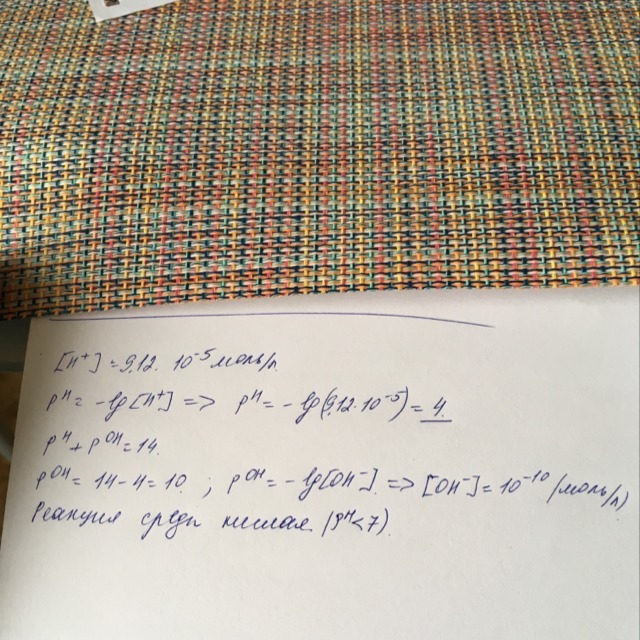 [H⁺] = 9,12 · 10⁻⁵ моль/л
pH = -lg[H⁺] => pH = -lg(9,12·10⁻⁵) = 4.
pH + pOH = 14.
pOH = 14 - 4 = 10 ; pOH = -lg[OH⁻] => [OH⁻] = 10⁻¹⁰ (моль/л)
Реакция среды кислая (pH < 7).